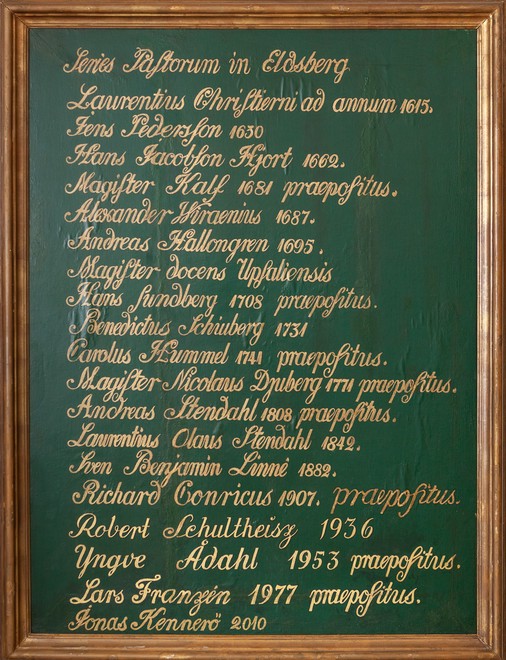 Series Paſtorum in Eldsberg
Laurentius Chriſtierni ad annum 1615.
Jens Pedersſon 1630
Hans Jacobſon Hjort 1662.
Magiſter Kalf 1681 praepoſitus.
Alexander Wiraenius 1687.
Andreas Hallongren 1695.
Magiſter docens Upſaliensis
Hans Sundberg 1708 praepoſitus.
Benedictus Schiuberg 1731
Carolus Hummel 1741 praepoſitus.
Magiſter Nicolaus Djuberg 1771 praepoſitus.
Andreas Stendahl 1808 praepoſitus.
Laurentius Olaus Stendahl 1842.
Sven Benjamin Linné 1882.
Richard Conricus 1907. praepoſitus.
Robert Schultheisz 1936
Yngve Ådahl 1953 praepoſitus.
Lars Franzén 1977 praepoſitus.
Jonas Kennerö 2010